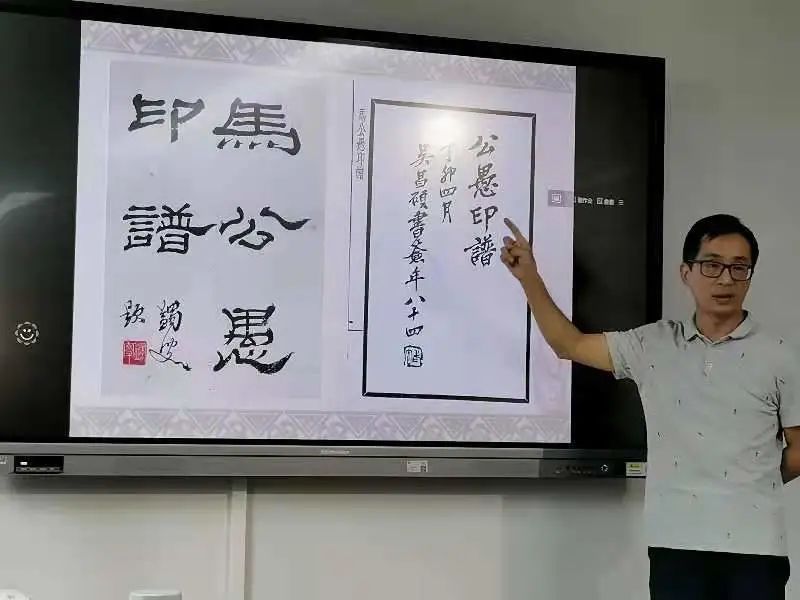 馬公愚
印譜
蠲叟
題
馬公愚印譜
公愚印譜
丁卯四月
吳昌碩書旹年八十四